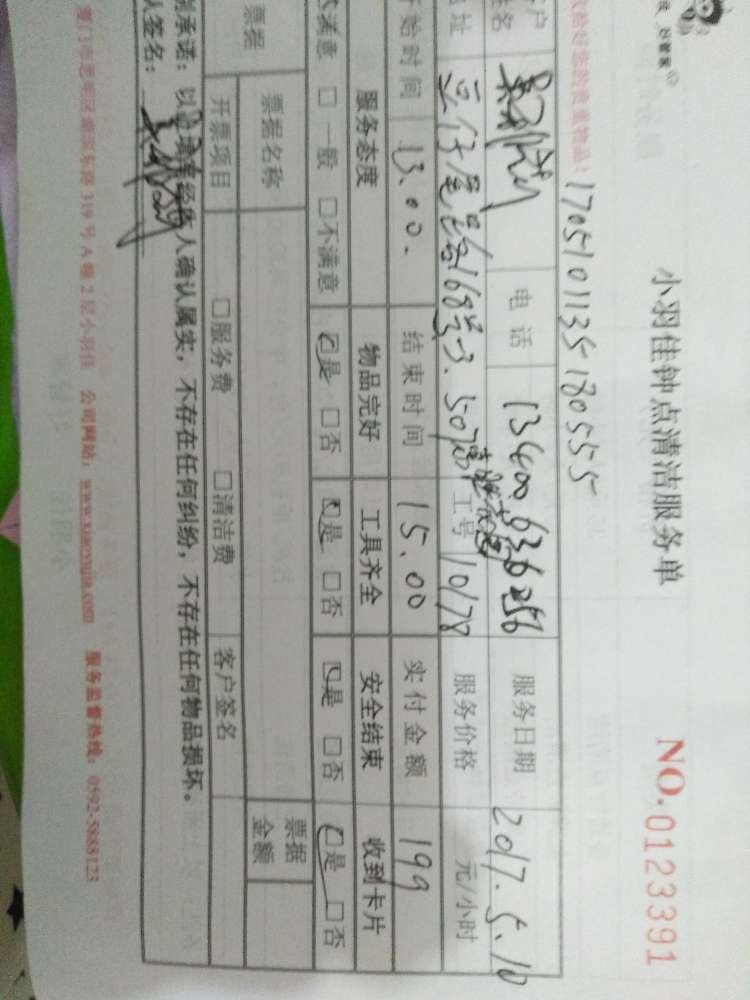 小羽佳钟点清洁服务单
NO.0123391
好管家
收拾好您的贵重物品:
1705101135180555
客户 姓名 电话 服务日期 2017.5.10
地址 工号 10178 服务价格 元/小时
开始时间 13.00. 结束时间 15.00 实付金额 199
服务态度 物品完好 工具齐全 安全结束 收到卡片
满意 □一般 □不满意 ☑是 □否 ☑是 □否 ☑是 □否 ☑是 □否
票据 票据名称 票据金额
开票项目 □服务费 □清洁费 客户签名
承诺:以上填写经本人确认属实,不存在任何纠纷,不存在任何物品损坏。
人签名:
厦门市思明区 319号A幢2层小羽佳 公司网站:www.xiaoyujia.com 服务监督热线:0592-5888123